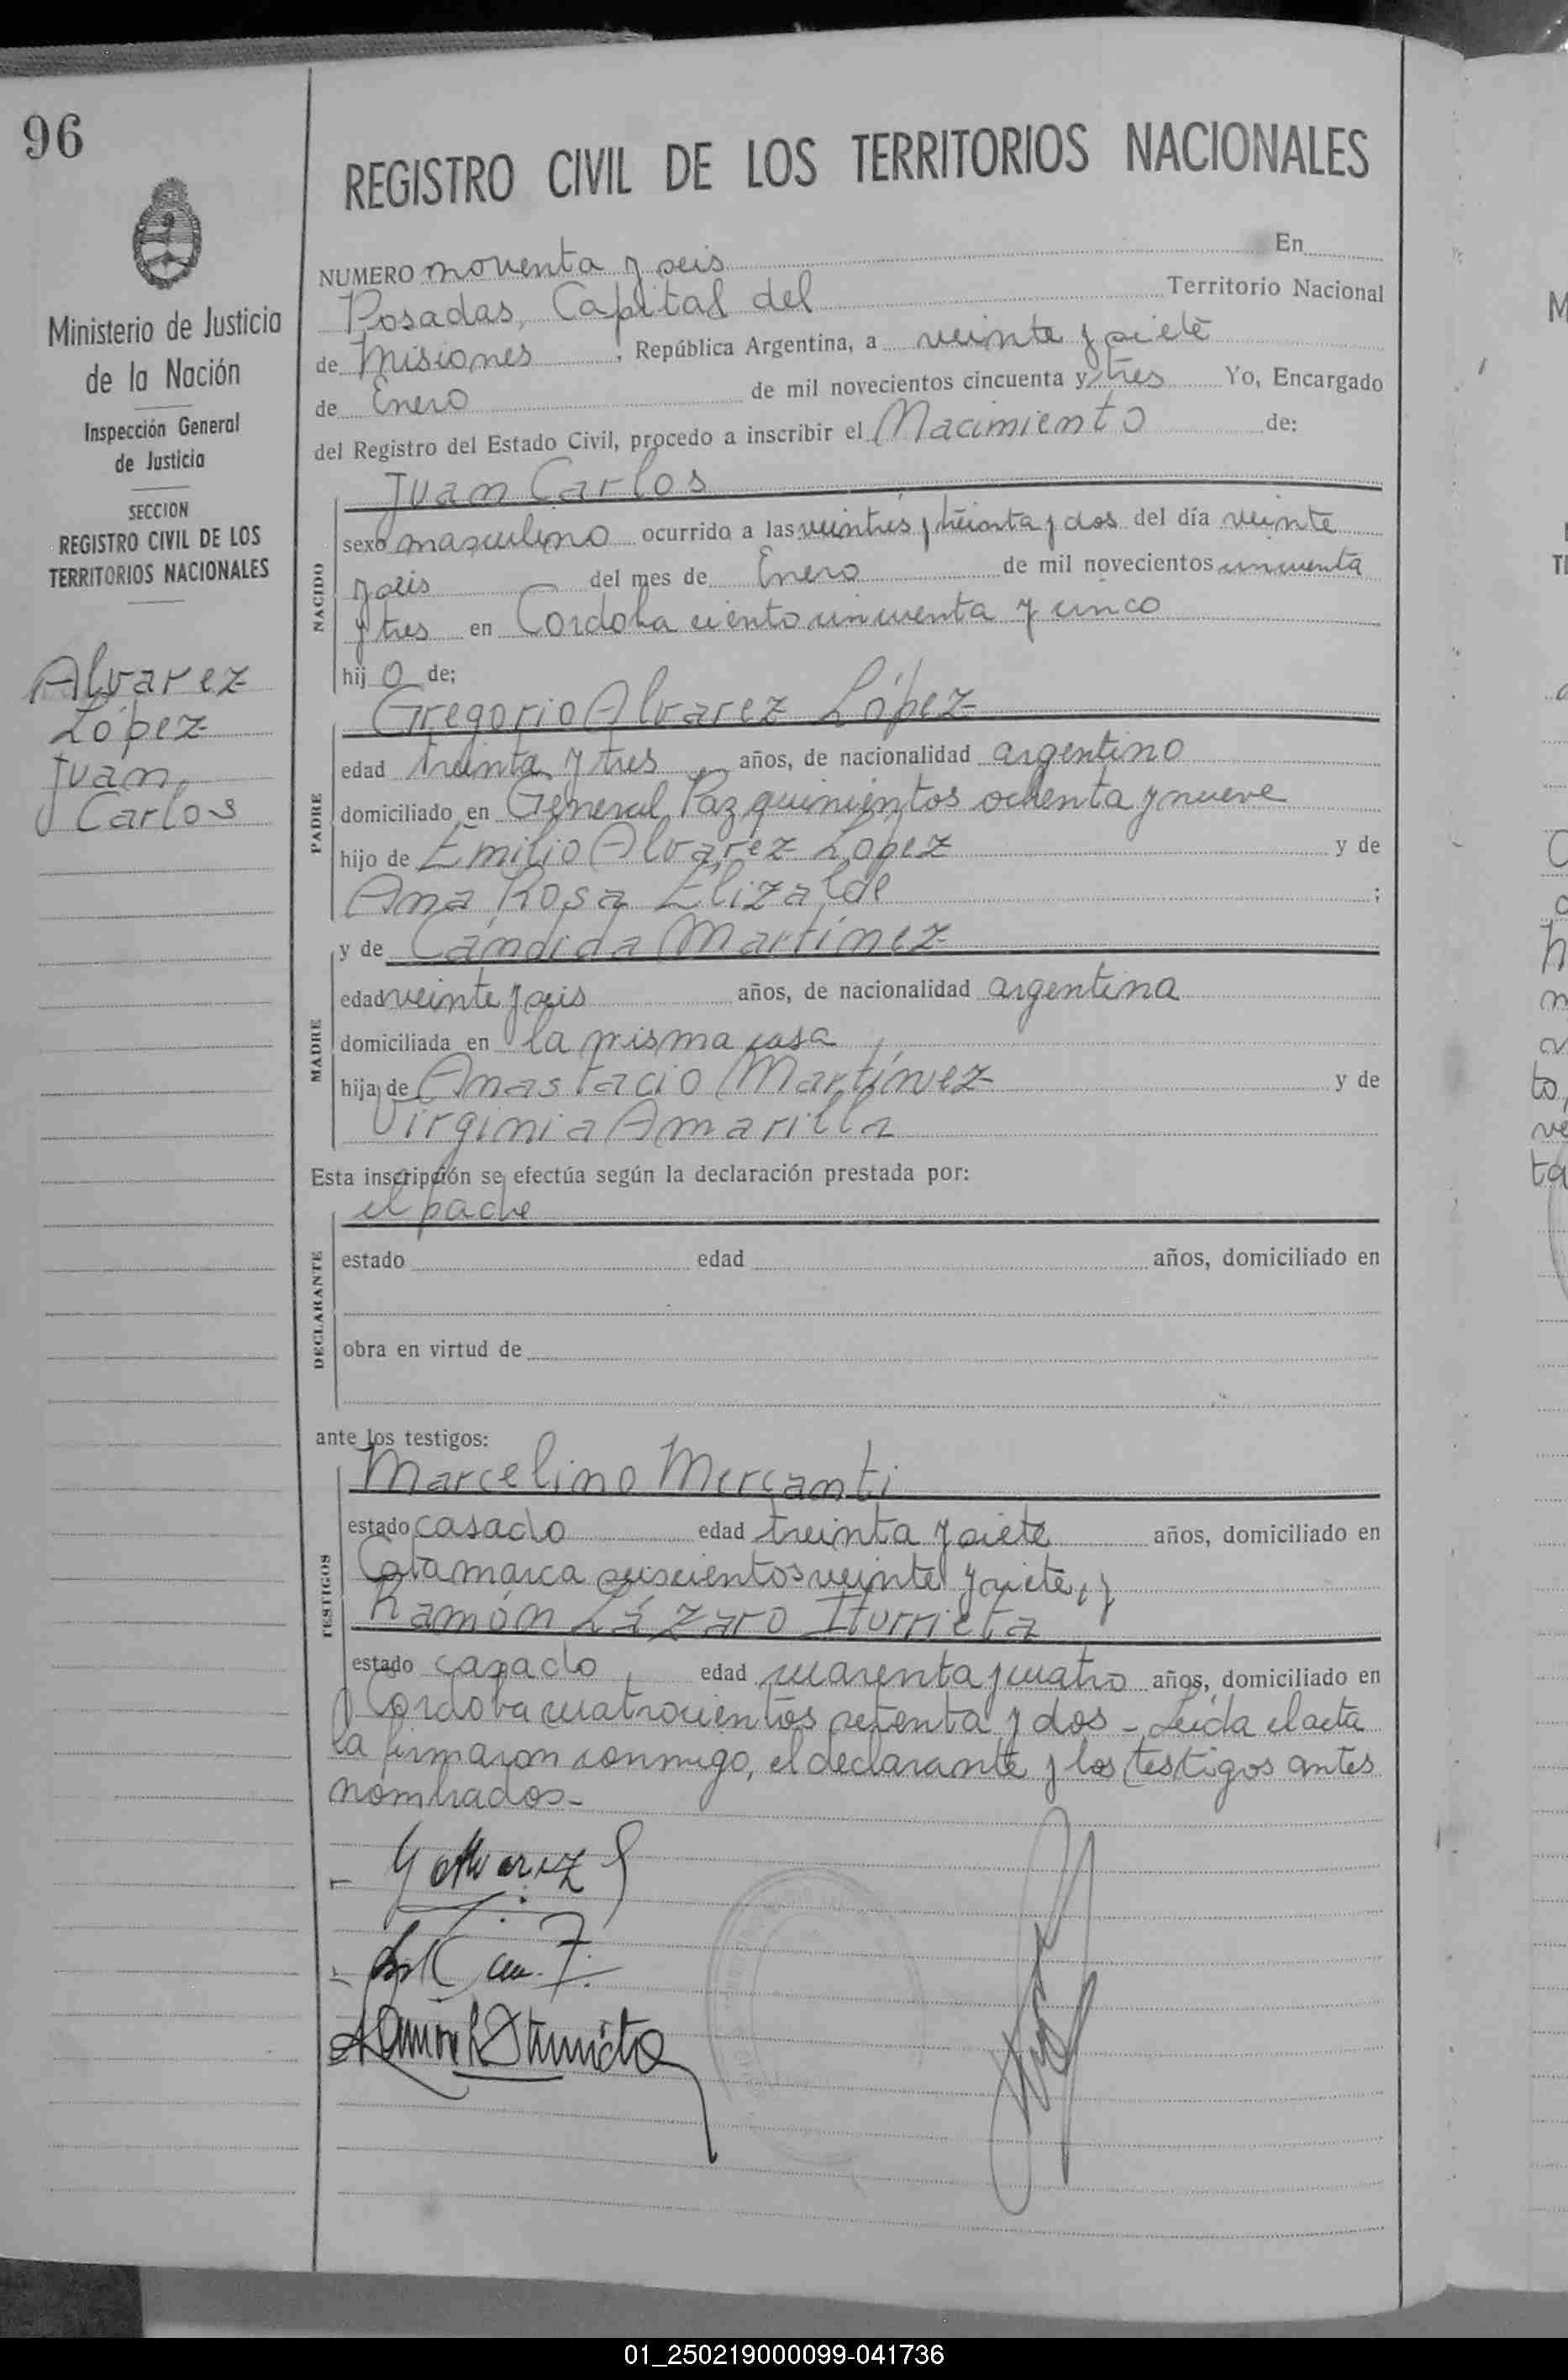 96
Ministerio de Justicia
de la Nación
Inspección General
de Justicia
SECCION
REGISTRO CIVIL DE LOS
TERRITORIOS NACIONALES
Alvarez
López
Juan
Carlos
REGISTRO CIVIL DE LOS TERRITORIOS NACIONALES
NUMERO noventa y seis En
Posadas, Capital del Territorio Nacional
de Misiones, República Argentina, a veinte y siete
de Enero de mil novecientos cincuenta y tres Yo, Encargado
del Registro del Estado Civil, procedo a inscribir el Nacimiento de:
Juan Carlos
NACIDO
sexo masculino ocurrido a las veintres y treinta y dos del día veinte
y seis del mes de Enero de mil novecientos cincuenta
y tres en Cordoba ciento cincuenta y cinco
hijo de;
Gregorio Alvarez López
PADRE
edad treinta y tres años, de nacionalidad argentino
domiciliado en General Paz quinientos ochenta y nueve
hijo de Emilio Alvarez López y de
Ana Rosa Elizalde ;
y de Cándida Martínez
MADRE
edad veinte y seis años, de nacionalidad argentina
domiciliada en la misma casa
hija de Anastacio Martínez y de
Virginia Amarilla
Esta inscripción se efectúa según la declaración prestada por:
el padre
DECLARANTE
estado edad años, domiciliado en
obra en virtud de
ante los testigos:
Marcelino Mercanti
TESTIGOS
estado casado edad treinta y siete años, domiciliado en
Catamarca seiscientos veinte y siete, y
Ramón Lázaro Iturrieta
estado casado, edad cuarenta y cuatro años, domiciliado en
Cordoba cuatrocientos setenta y dos - Leída el acta
la firmaron conmigo, el declarante y los testigos antes
nombrados-
G Alvarez L
Ramón L Iturrieta
01_250219000099-041736